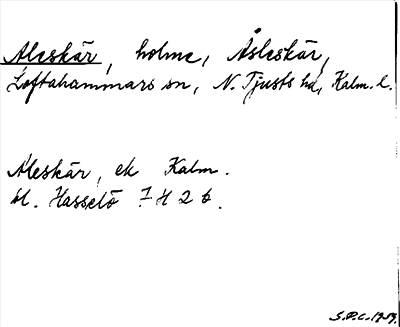 Aleskär, holme, Åsleskär,
Loftahammars sn, N. Tjusts hd, Kalm. l.
Aleskär, ek Kalm.
bl. Hasselö 7 H 2 b.
S.P.C. 1959.